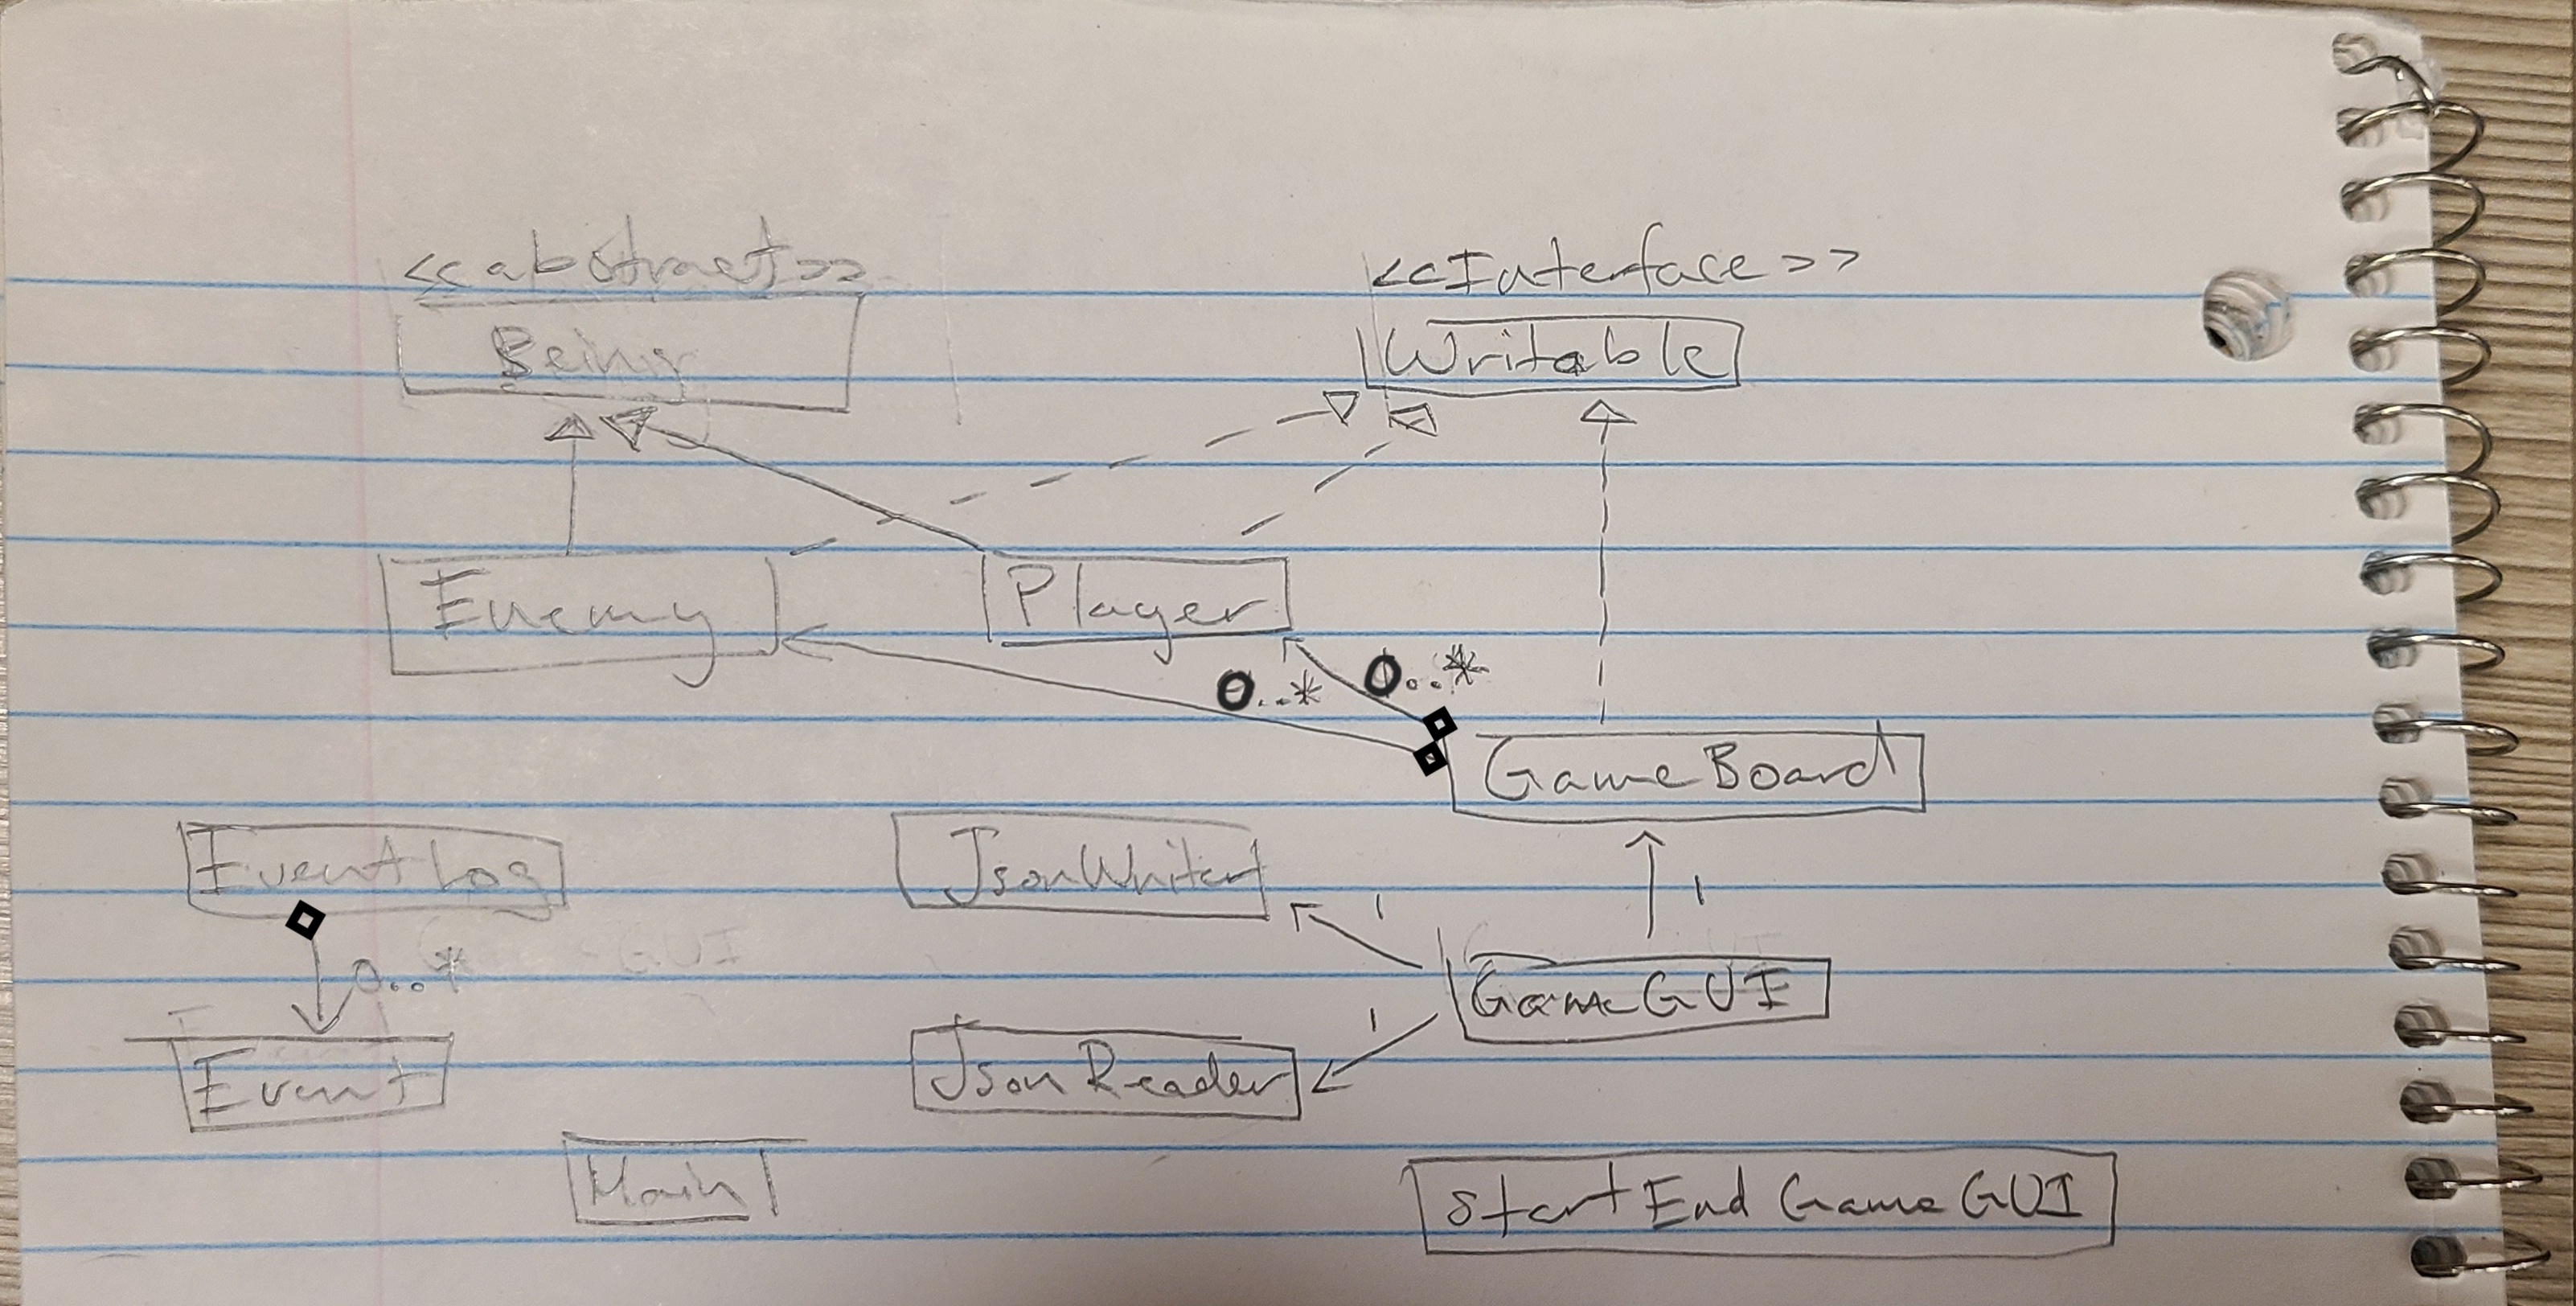 <<abstract>>
Being
<<Interface>>
Writable
Enemy
Player
0..*
0..*
GameBoard
EventLog
JsonWriter
1
1
0..*
GameGUI
GameGUI
Event
JsonReader
1
Main
Start End Game GUI